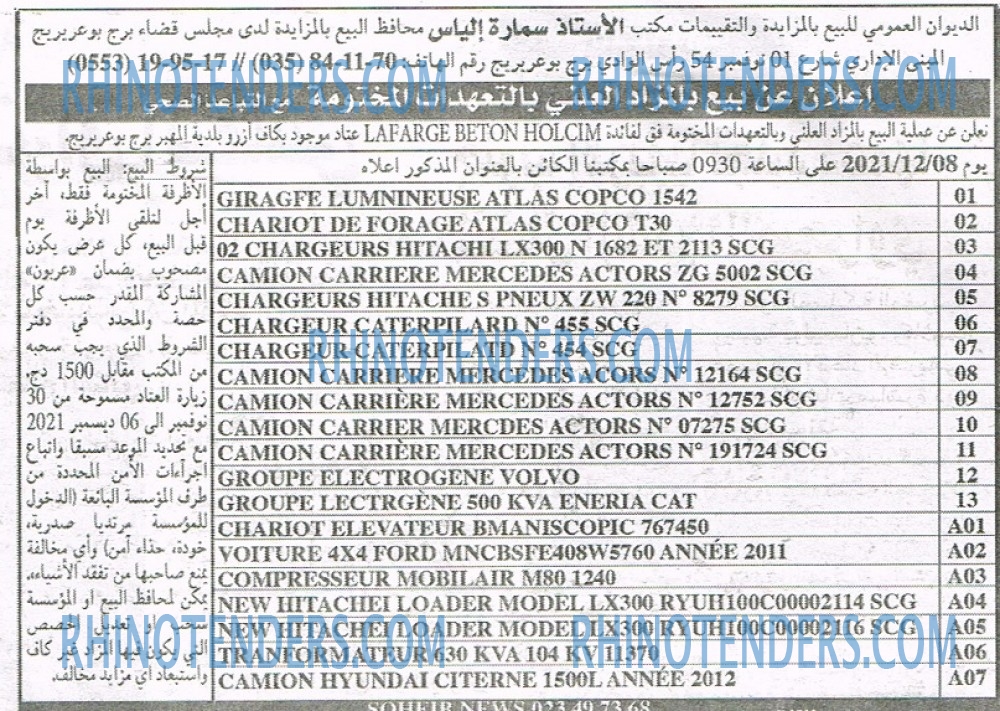 الديوان العمومي للبيع بالمزايدة والتقييمات مكتب الأستاذ سمارة إلياس محافظ البيع بالمزايدة لدى مجلس قضاء برج بوعريريج
المبنى الإداري شارع 01 نوفمبر 54 رأس الوادي برج بوعريريج رقم الهاتف: 70-11-84 (035) // 17-95-19 (0553)
اعلان عن بيع بالمزاد العلني بالتعهدات المختومة مع التباعد الصحي
نعلن عن عملية البيع بالمزاد العلني وبالتعهدات المختومة فق لفائدة LAFARGE BETON HOLCIM عتاد موجود بكاف أزرو بلدية المهير برج بوعريريج.
يوم 2021/12/08 على الساعة 0930 صباحا بمكتبنا الكائن بالعنوان المذكور اعلاه
01 GIRAGFE LUMNINEUSE ATLAS COPCO 1542
02 CHARIOT DE FORAGE ATLAS COPCO T30
03 02 CHARGEURS HITACHI LX300 N 1682 ET 2113 SCG
04 CAMION CARRIERE MERCEDES ACTORS ZG 5002 SCG
05 CHARGEURS HITACHE S PNEUX ZW 220 N° 8279 SCG
06 CHARGEUR CATERPILARD N° 455 SCG
07 CHARGEUR CATERPILATD N° 454 SCG
08 CAMION CARRIÈRE MERCEDES ACORS N° 12164 SCG
09 CAMION CARRIÈRE MERCEDES ACTORS N° 12752 SCG
10 CAMION CARRIER MERCDES ACTORS N° 07275 SCG
11 CAMION CARRIÈRE MERCEDES ACTORS N° 191724 SCG
12 GROUPE ELECTROGENE VOLVO
13 GROUPE LECTRGÈNE 500 KVA ENERIA CAT
A01 CHARIOT ELEVATEUR BMANISCOPIC 767450
A02 VOITURE 4X4 FORD MNCBSFE408W5760 ANNÉE 2011
A03 COMPRESSEUR MOBILAIR M80 1240
A04 NEW HITACHEI LOADER MODEL LX300 RYUH100C00002114 SCG
A05 NEW HITACHEI LOADER MODEL LX300 RYUH100C00002116 SCG
A06 TRANFORMATEUR 630 KVA 104 KV 11370
A07 CAMION HYUNDAI CITERNE 1500L ANNÉE 2012
شروط البيع: البيع بواسطة
الأظرفة المختومة فقط، آخر
أجل لتلقي الأظرفة يوم
قبل البيع، كل عرض يكون
مصحوب بضمان «عربون»
المشاركة المقدر حسب كل
حصة والمحدد في دفتر
الشروط الذي يجب سحبه
من المكتب مقابل 1500 دج.
زيارة العتاد مسموحة من 30
نوفمبر الى 06 ديسمبر 2021
مع تحديد الموعد مسبقا واتباع
اجراءات الأمن المحددة من
طرف المؤسسة البائعة (الدخول
للمؤسسة مرتديا صدرية،
خودة، حذاء آمن) وأي مخالفة
يمنع صاحبها من تفقد الأشياء.
يمكن لمحافظ البيع او المؤسسة
سحب و تعديل الحصص
التي يكون فيها المزاد غير كاف
واستبعاد اي مزايد مخالف.
SOHEIB NEWS 023 49 73 68
RHINOTENDERS.COM
RHINOTENDERS.COM
RHINOTENDERS.COM
RHINOTENDERS.COM
RHINOTENDERS.COM